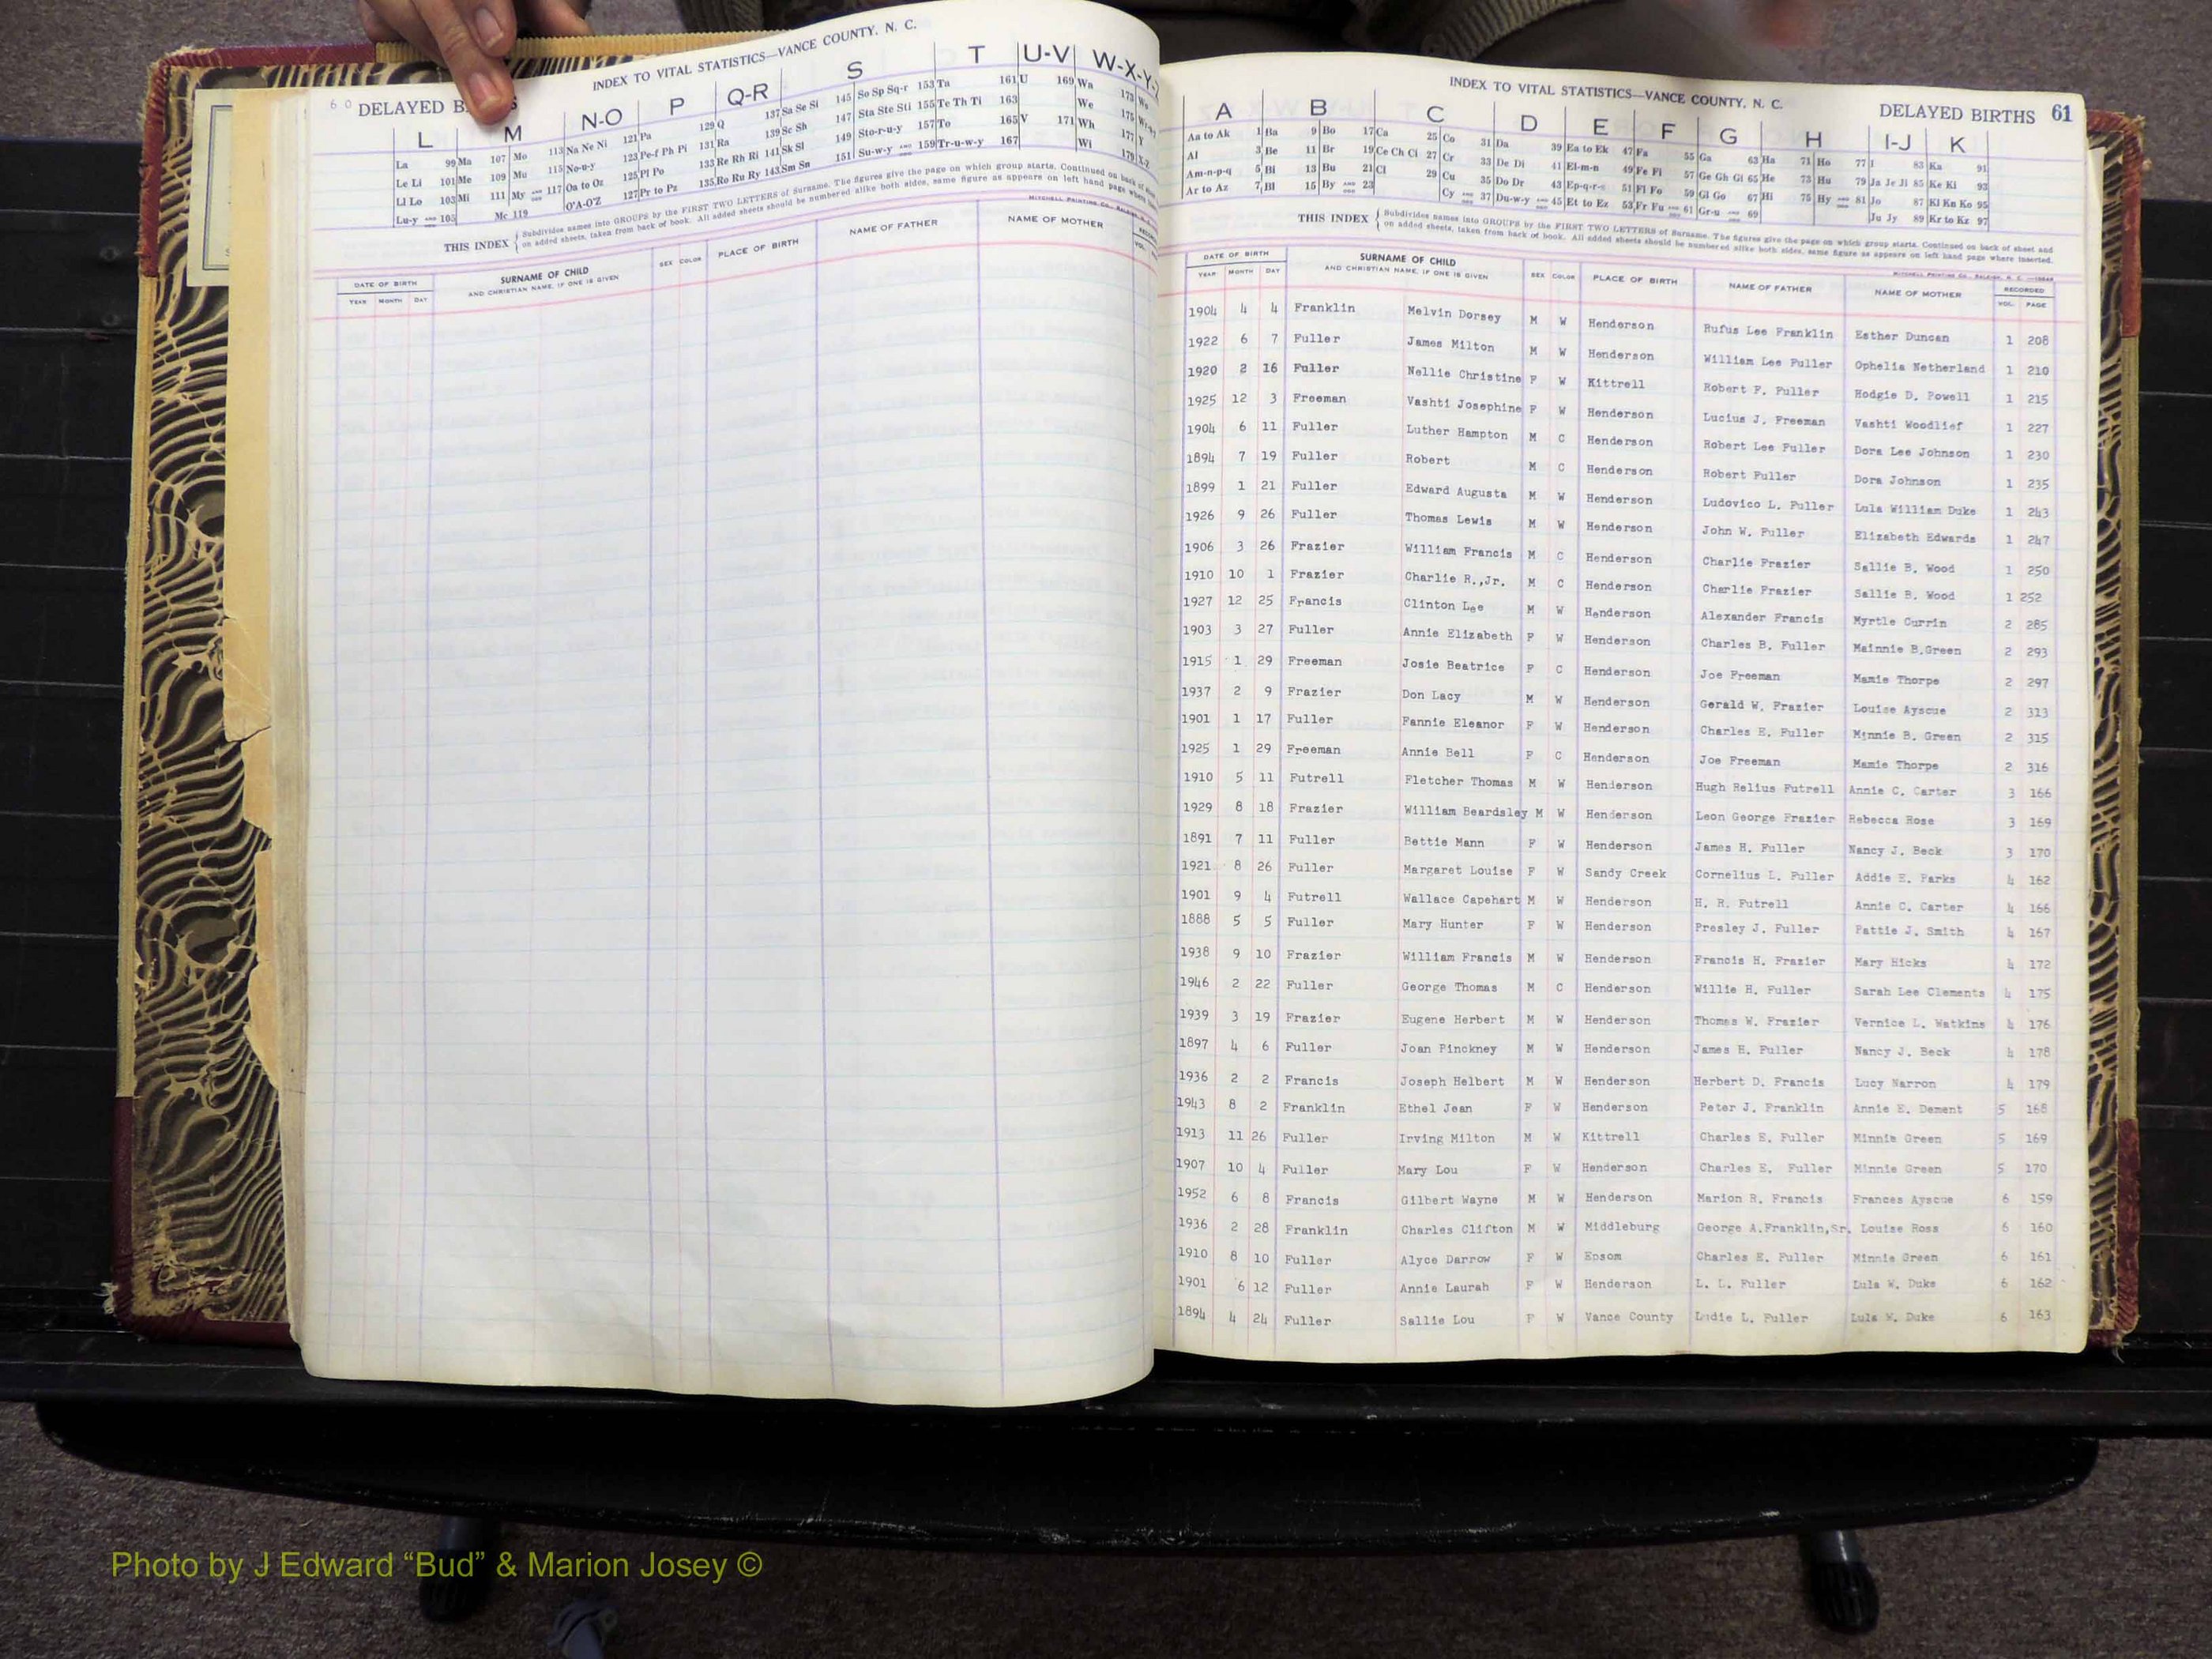 INDEX TO VITAL STATISTICS—VANCE COUNTY, N. C.
60 DELAYED
L M N-O P Q-R S T U-V W-X-Y-Z
La 99 Ma 107 Mo 113 Na Ne Ni 121 Pa 129 Q 137 Sa Se Si 145 So Sp Sq-r 153 Ta 161 U 169 Wa 173 Wo
Le Li 101 Me 109 Mu 115 No-u-y 123 Pe-f Ph Pi 131 Ra 139 Sc Sh 147 Sta Ste Sti 155 Te Th Ti 163 We 175
Ll Lo 103 Mi 111 My AND ODD 117 On to Oz 125 Pl Po 133 Re Rh Ri 141 Sk Sl 149 Sto-r-u-y 157 To 165 V 171 Wh 177 Y
Lu-y AND ODD 105 Mc 119 O'A-O'Z 127 Pr to Pz 135 Ro Ru Ry 143 Sm Sn 151 Su-w-y AND ODD 159 Tr-u-w-y 167 Wi 179 X-Z
THIS INDEX { Subdivides names into GROUPS by the FIRST TWO LETTERS of Surname. The figures give the page on which group starts. Continued on back of
on added sheets, taken from back of book. All added sheets should be numbered alike both sides, same figure as appears on left hand page where
MITCHELL PRINTING CO., RALEIGH,
DATE OF BIRTH SURNAME OF CHILD SEX COLOR PLACE OF BIRTH NAME OF FATHER NAME OF MOTHER
YEAR MONTH DAY AND CHRISTIAN NAME, IF ONE IS GIVEN VOL.
INDEX TO VITAL STATISTICS—VANCE COUNTY, N. C.
DELAYED BIRTHS 61
A B C D E F G H I-J K
Aa to Ak 1 Ba 9 Bo 17 Ca 25 Co 31 Da 39 Ea to Ek 47 Fa 55 Ga 63 Ha 71 Ho 77 I 83 Ka 91
Al 3 Be 11 Br 19 Ce Ch Ci 27 Cr 33 De Di 41 El-m-n 49 Fe Fi 57 Ge Gh Gi 65 He 73 Hu 79 Ja Je Ji 85 Ke Ki 93
Am-n-p-q 5 Bi 13 Bu 21 Cl 29 Cu 35 Do Dr 43 Ep-q-r-s 51 Fl Fo 59 Gl Go 67 Hi 75 Hy AND ODD 81 Jo 87 Kl Kn Ko 95
Ar to Az 7 Bl 15 By AND ODD 23 Cy AND ODD 37 Du-w-y AND ODD 45 Et to Ez 53 Fr Fu AND ODD 61 Gr-u AND ODD 69 Ju Jy 89 Kr to Kz 97
THIS INDEX { Subdivides names into GROUPS by the FIRST TWO LETTERS of Surname. The figures give the page on which group starts. Continued on back of sheet and
on added sheets, taken from back of book. All added sheets should be numbered alike both sides, same figure as appears on left hand page where inserted.
MITCHELL PRINTING CO., RALEIGH, N. C.
DATE OF BIRTH SURNAME OF CHILD SEX COLOR PLACE OF BIRTH NAME OF FATHER NAME OF MOTHER RECORDED
YEAR MONTH DAY AND CHRISTIAN NAME, IF ONE IS GIVEN VOL. PAGE
1904 4 4 Franklin Melvin Dorsey M W Henderson Rufus Lee Franklin Esther Duncan 1 208
1922 6 7 Fuller James Milton M W Henderson William Lee Fuller Ophelia Netherland 1 210
1920 2 16 Fuller Nellie Christine F W Kittrell Robert F. Fuller Hodgie D. Powell 1 215
1925 12 3 Freeman Vashti Josephine F W Henderson Lucius J. Freeman Vashti Woodlief 1 227
1904 6 11 Fuller Luther Hampton M C Henderson Robert Lee Fuller Dora Lee Johnson 1 230
1894 7 19 Fuller Robert M C Henderson Robert Fuller Dora Johnson 1 235
1899 1 21 Fuller Edward Augusta M W Henderson Ludovico L. Fuller Lula William Duke 1 243
1926 9 26 Fuller Thomas Lewis M W Henderson John W. Fuller Elizabeth Edwards 1 247
1906 3 26 Frazier William Francis M C Henderson Charlie Frazier Sallie B. Wood 1 250
1910 10 1 Frazier Charlie R.,Jr. M C Henderson Charlie Frazier Sallie B. Wood 1 252
1927 12 25 Francis Clinton Lee M W Henderson Alexander Francis Myrtle Currin 2 285
1903 3 27 Fuller Annie Elizabeth F W Henderson Charles B. Fuller Mainnie B.Green 2 293
1915 1 29 Freeman Josie Beatrice F C Henderson Joe Freeman Mamie Thorpe 2 297
1937 2 9 Frazier Don Lacy M W Henderson Gerald W. Frazier Louise Ayscue 2 313
1901 1 17 Fuller Fannie Eleanor F W Henderson Charles E. Fuller Minnie B. Green 2 315
1925 1 29 Freeman Annie Bell F C Henderson Joe Freeman Mamie Thorpe 2 316
1910 5 11 Futrell Fletcher Thomas M W Henderson Hugh Relius Futrell Annie C. Carter 3 166
1929 8 18 Frazier William Beardsley M W Henderson Leon George Frazier Rebecca Rose 3 169
1891 7 11 Fuller Bettie Mann F W Henderson James H. Fuller Nancy J. Beck 3 170
1921 8 26 Fuller Margaret Louise F W Sandy Creek Cornelius L. Fuller Addie E. Parks 4 162
1901 9 4 Futrell Wallace Capehart M W Henderson H. R. Futrell Annie C. Carter 4 166
1888 5 5 Fuller Mary Hunter F W Henderson Presley J. Fuller Pattie J. Smith 4 167
1938 9 10 Frazier William Francis M W Henderson Francis H. Frazier Mary Hicks 4 172
1946 2 22 Fuller George Thomas M C Henderson Willie H. Fuller Sarah Lee Clements 4 175
1939 3 19 Frazier Eugene Herbert M W Henderson Thomas W. Frazier Vernice L. Watkins 4 176
1897 4 6 Fuller Joan Pinckney M W Henderson James H. Fuller Nancy J. Beck 4 178
1936 2 2 Francis Joseph Helbert M W Henderson Herbert D. Francis Lucy Narron 4 179
1943 8 2 Franklin Ethel Jean F W Henderson Peter J. Franklin Annie E. Dement 5 168
1913 11 26 Fuller Irving Milton M W Kittrell Charles E. Fuller Minnie Green 5 169
1907 10 4 Fuller Mary Lou F W Henderson Charles E. Fuller Minnie Green 5 170
1952 6 8 Francis Gilbert Wayne M W Henderson Marion R. Francis Frances Ayscue 6 159
1936 2 28 Franklin Charles Clifton M W Middleburg George A.Franklin,Sr. Louise Ross 6 160
1910 8 10 Fuller Alyce Darrow F W Epsom Charles E. Fuller Minnie Green 6 161
1901 6 12 Fuller Annie Laurah F W Henderson L. L. Fuller Lula W. Duke 6 162
1894 4 24 Fuller Sallie Lou F W Vance County Ludie L. Fuller Lula W. Duke 6 163
Photo by J Edward “Bud” & Marion Josey ©